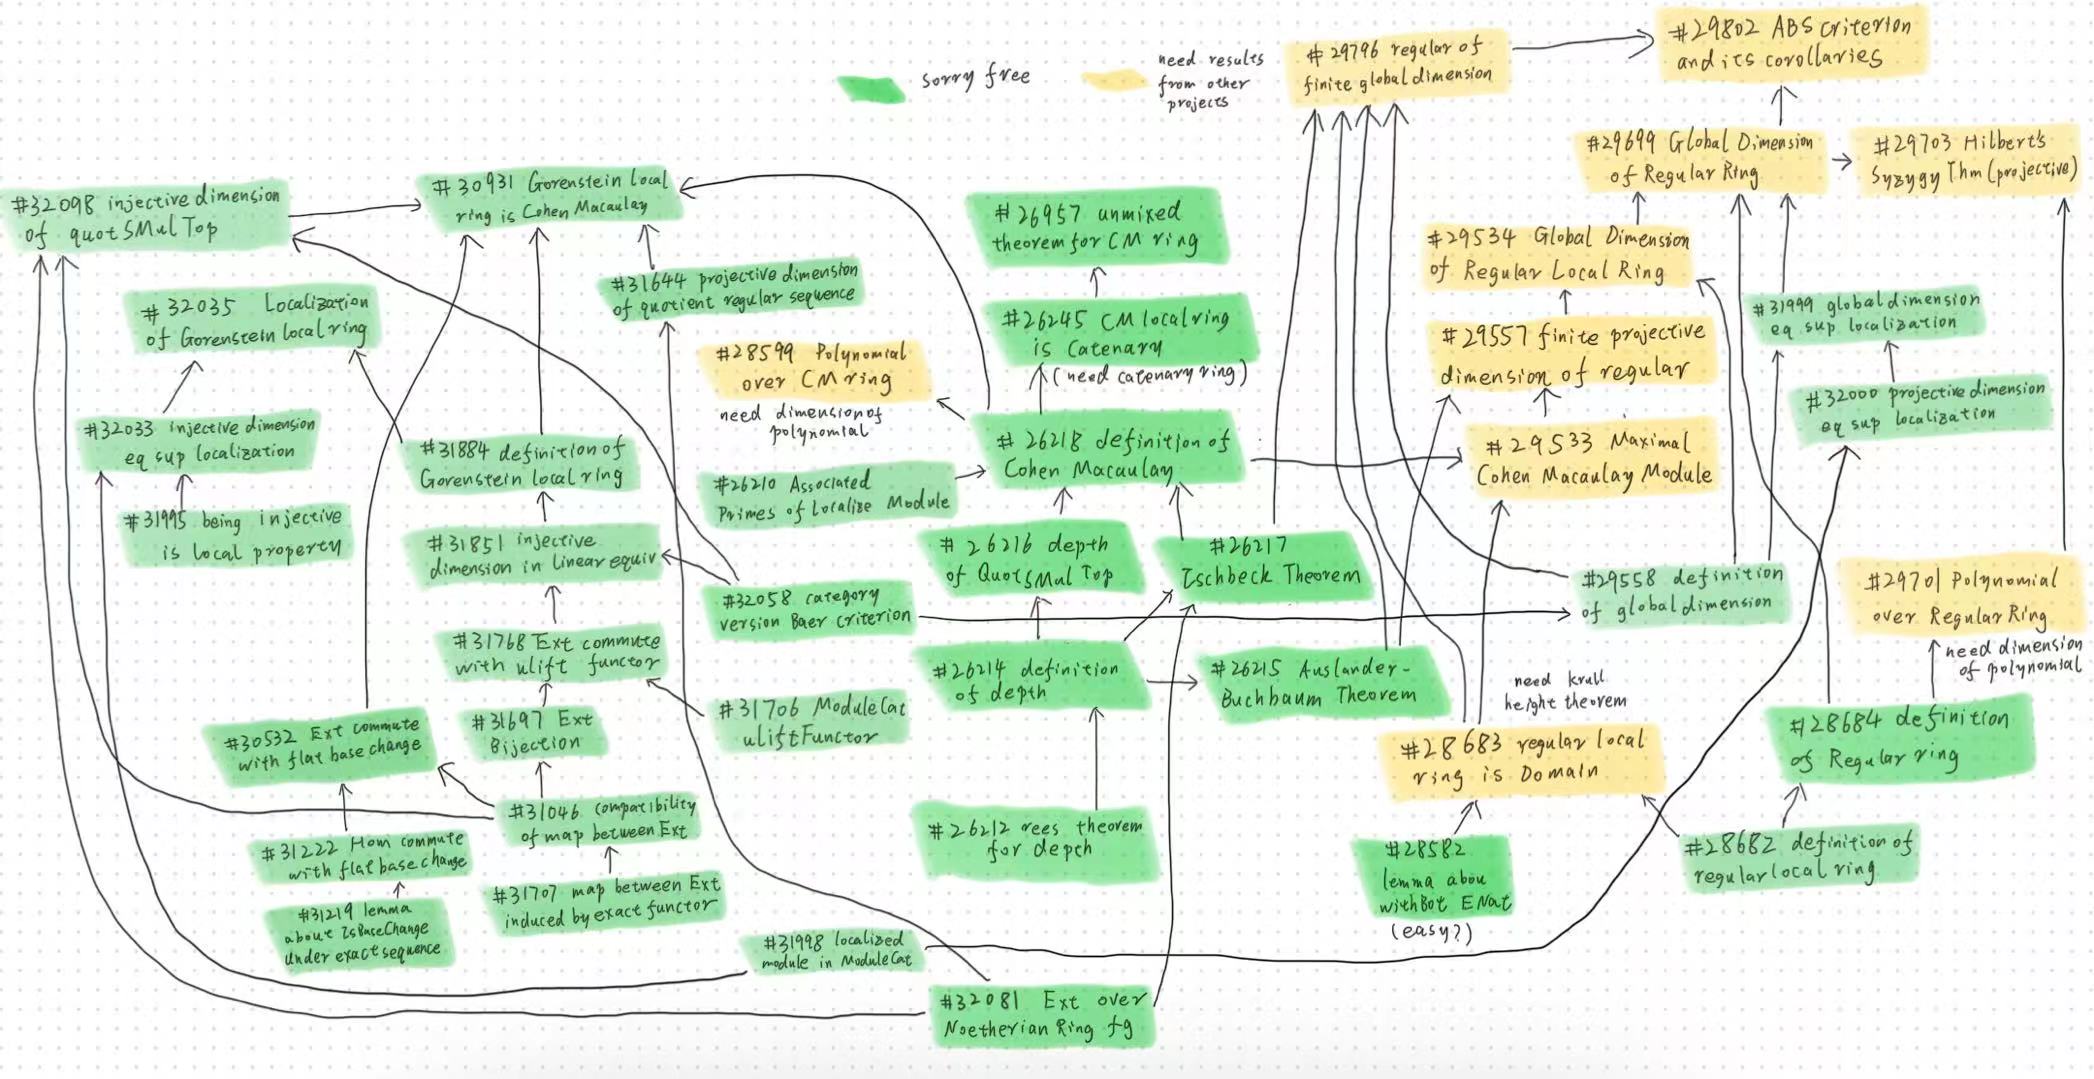 sorry free
need results
from other
projects
#29796 regular of
finite global dimension
#29802 ABS criterion
and its corollaries
#29699 Global Dimension
of Regular Ring
#29703 Hilbert's
Syzygy Thm (projective)
#32098 injective dimension
of quotSMulTop
#30931 Gorenstein local
ring is Cohen Macaulay
#26957 unmixed
theorem for CM ring
#29534 Global Dimension
of Regular Local Ring
#31644 projective dimension
of quotient regular sequence
#32035 Localization
of Gorenstein local ring
#26245 CM local ring
is Catenary
(need catenary ring)
#31999 global dimension
eq sup localization
#29557 finite projective
dimension of regular
#28599 Polynomial
over CM ring
need dimension of
polynomial
#32000 projective dimension
eq sup localization
#32033 injective dimension
eq sup localization
#31884 definition of
Gorenstein local ring
#26218 definition of
Cohen Macaulay
#29533 Maximal
Cohen Macaulay Module
#26210 Associated
Primes of Localize Module
#31995 being injective
is local property
#31851 injective
dimension in linear equiv
#26216 depth
of QuotSMulTop
#26217
Ischbeck Theorem
#29558 definition
of global dimension
#29701 Polynomial
over Regular Ring
need dimension
of polynomial
#32058 category
version Baer criterion
#31768 Ext commute
with ulift functor
#26214 definition
of depth
#26215 Auslander-
Buchbaum Theorem
need krull
height theorem
#31706 ModuleCat
uliftFunctor
#31697 Ext
Bijection
#30532 Ext commute
with flat base change
#28683 regular local
ring is Domain
#28684 definition
of Regular ring
#31046 compatibility
of map between Ext
#26212 rees theorem
for depth
#31222 Hom commute
with flat base change
#28582
lemma abou
withBot ENat
(easy?)
#28682 definition of
regular local ring
#31707 map between Ext
induced by exact functor
#31219 lemma
about IsBaseChange
under exact sequence
#31998 localized
module in ModuleCat
#32081 Ext over
Noetherian Ring fg